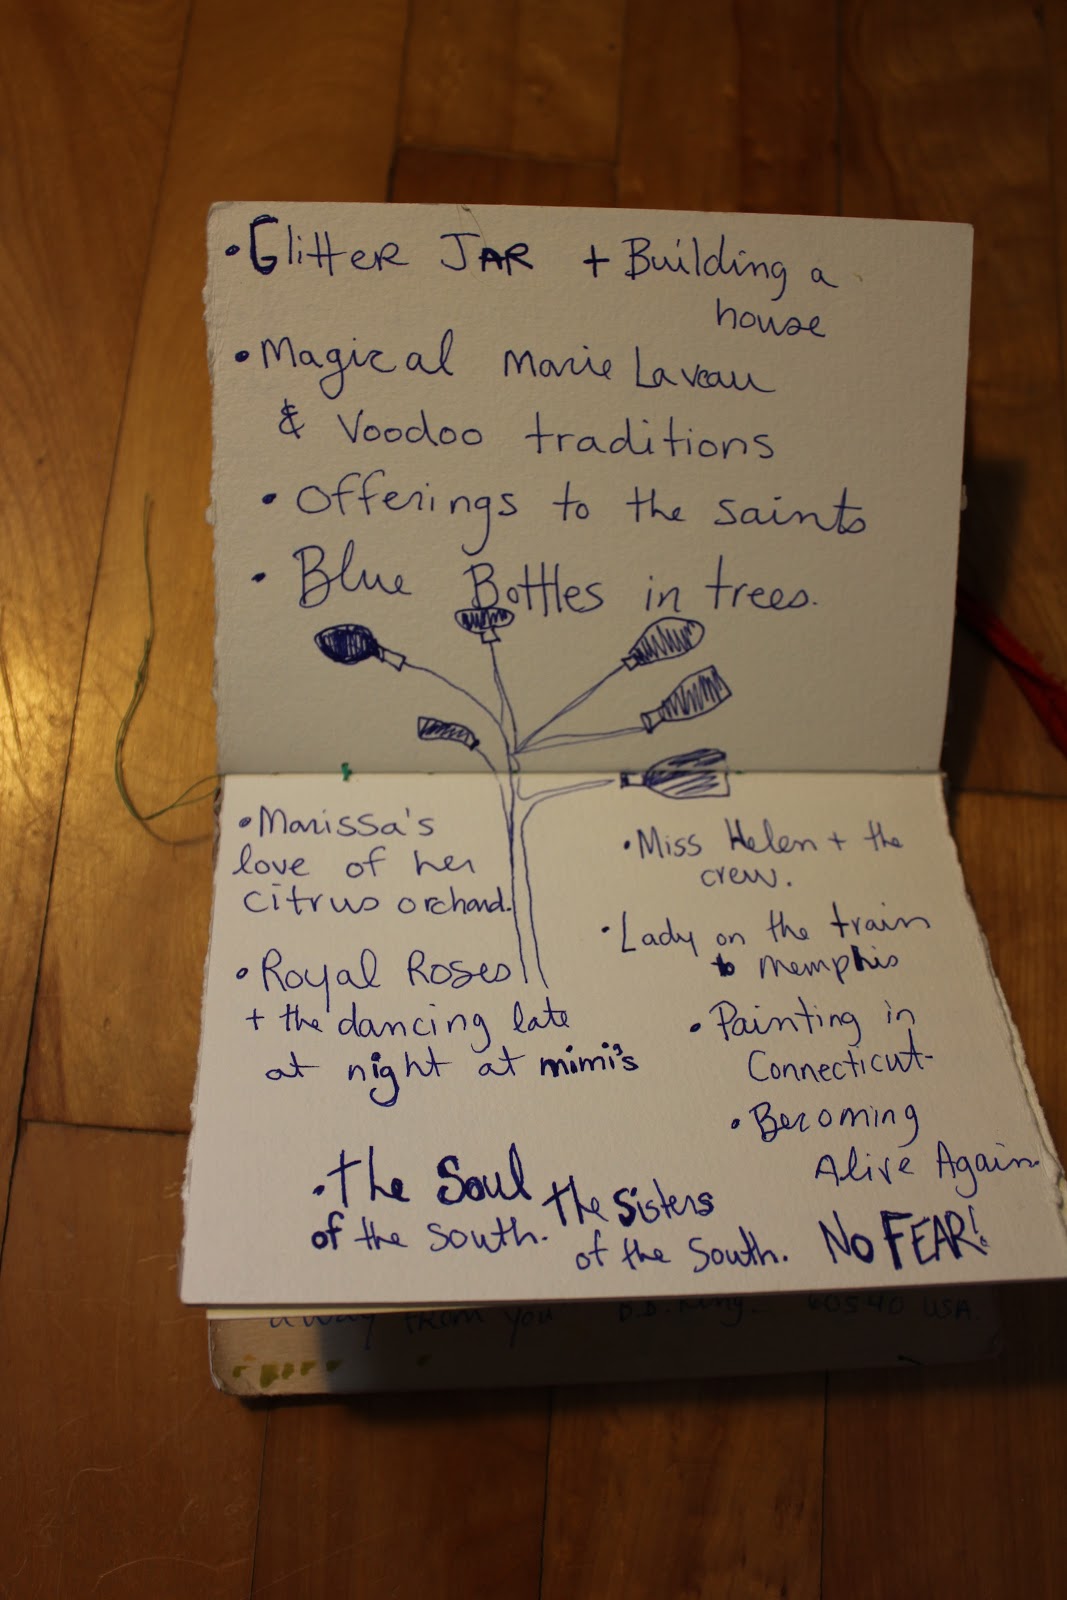 • Glitter Jar + Building a
house
• Magical Marie Laveau
& Voodoo traditions
• Offerings to the saints
• Blue Bottles in trees.
• Marissa's
love of her
citrus orchard.
• Royal Roses
+ the dancing late
at night at mimi's
• Miss Helen + the
crew.
• Lady on the train
to memphis
• Painting in
Connecticut
• Becoming
Alive Again
• The Soul
of the South.
The Sisters
of the South.
NO FEAR!
away from you D.D. King. 60540 USA.